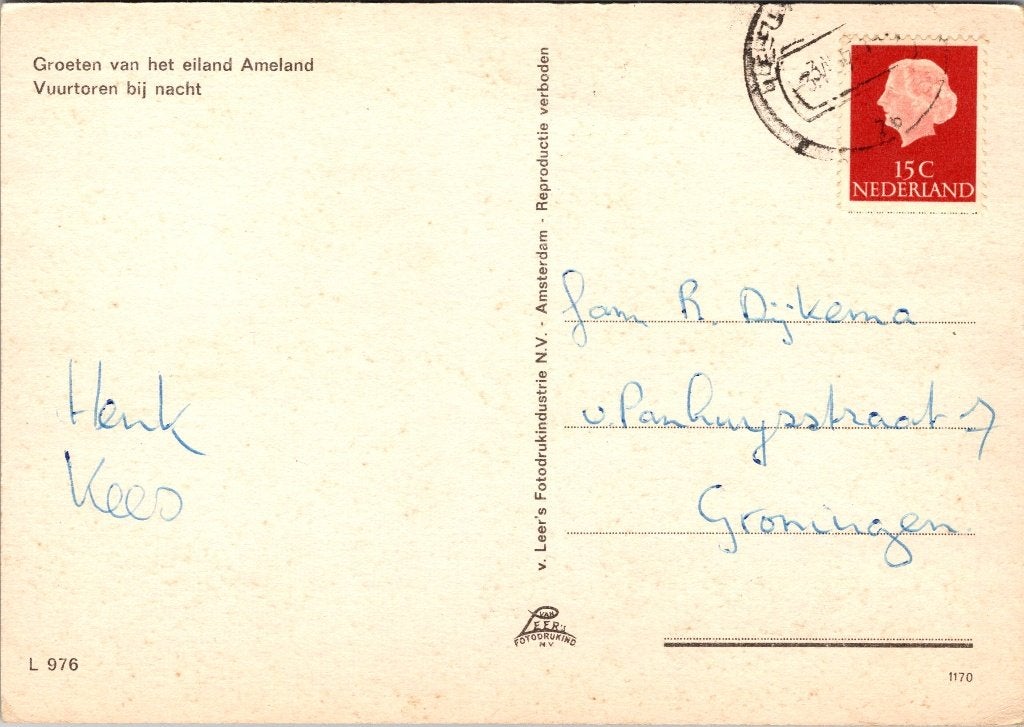 Groeten van het eiland Ameland
Vuurtoren bij nacht
Henk
Kees
L 976
v. Leer's Fotodrukindustrie N.V. - Amsterdam - Reproductie verboden
VAN
LEER's
FOTODRUKIND
N.V.
15 C
NEDERLAND
Fam R. Dijkema
v. Panhuysstraat 7
Groningen
1170